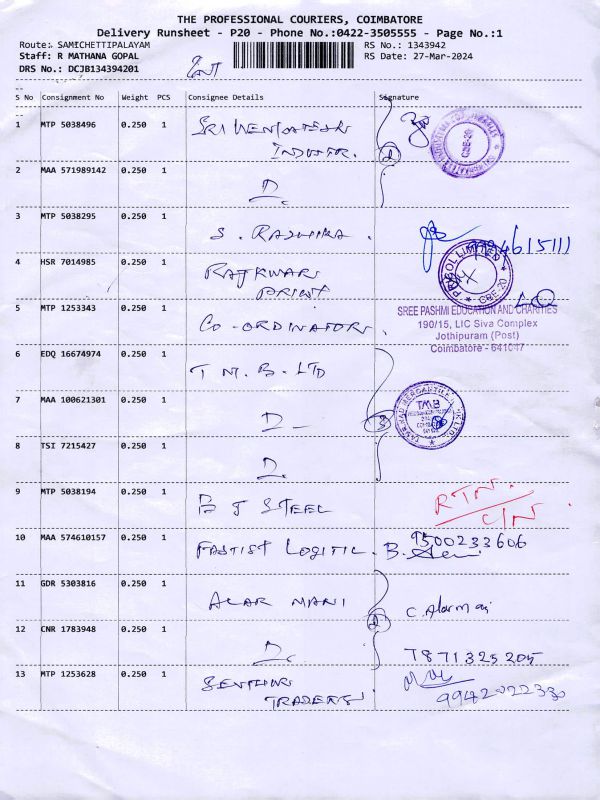 THE PROFESSIONAL COURIERS, COIMBATORE
Delivery Runsheet - P20 - Phone No.:0422-3505555 - Page No.:1
Route: SAMICHETTIPALAYAM RS No.: 1343942
Staff: R MATHANA GOPAL RS Date: 27-Mar-2024
DRS No.: DCJB134394201
S No Consignment No Weight PCS Consignee Details Signature
1 MTP 5038496 0.250 1 SRI VENKATESWR
INDUSTR. 2
2 MAA 571989142 0.250 1 D.
3 MTP 5038295 0.250 1 S. RADHIKA. 9994615111
4 HSR 7014985 0.250 1 RAJKWARI
PRINT
PRISOL LIMITED
CBE-20
5 MTP 1253343 0.250 1 CO-ORDINATORS.
SREE PASHMI EDUCATION AND CHARITIES
190/15, LIC Siva Complex
Jothipuram (Post)
Coimbatore - 641047
6 EDQ 16674974 0.250 1 T M. B. LTD
7 MAA 100621301 0.250 1 D 3
TMB
8 TSI 7215427 0.250 1 D.
9 MTP 5038194 0.250 1 B J STEEL RTN.
C/N
10 MAA 574610157 0.250 1 FASTIST LOGITIC. B. 9500233606
11 GDR 5303816 0.250 1 ALAR MANI C. Alarmani
2
12 CNR 1783948 0.250 1 D. 7871325205
13 MTP 1253628 0.250 1 SENTHUR
TRADERS. 9942022330